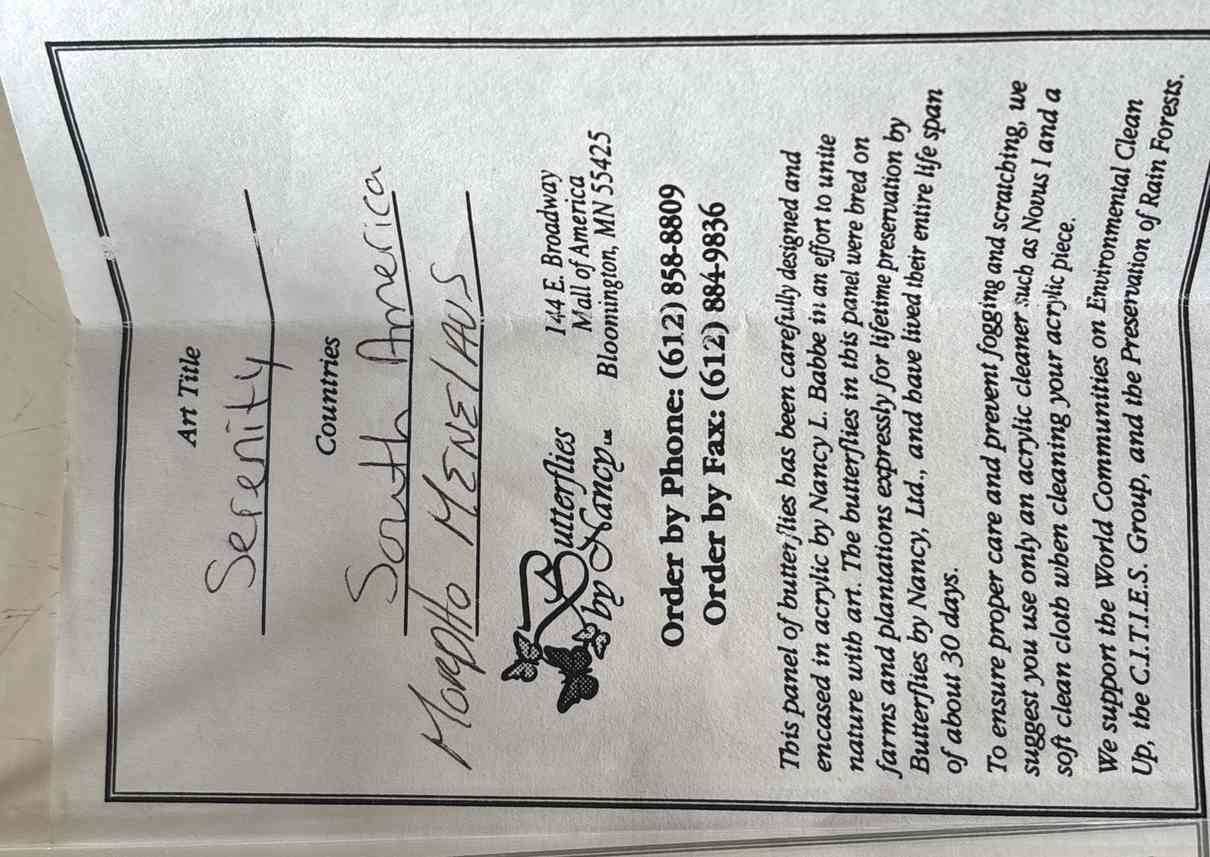 Art Title
Serenity
Countries
South America
Morpho MENElAUS
Butterflies
by Nancy™
144 E. Broadway
Mall of America
Bloomington, MN 55425
Order by Phone: (612) 858-8809
Order by Fax: (612) 884-9836
This panel of butterflies has been carefully designed and
encased in acrylic by Nancy L. Babbe in an effort to unite
nature with art. The butterflies in this panel were bred on
farms and plantations expressly for lifetime preservation by
Butterflies by Nancy, Ltd., and have lived their entire life span
of about 30 days.
To ensure proper care and prevent fogging and scratching, we
suggest you use only an acrylic cleaner such as Novus 1 and a
soft clean cloth when cleaning your acrylic piece.
We support the World Communities on Environmental Clean
Up, the C.I.T.I.E.S. Group, and the Preservation of Rain Forests.